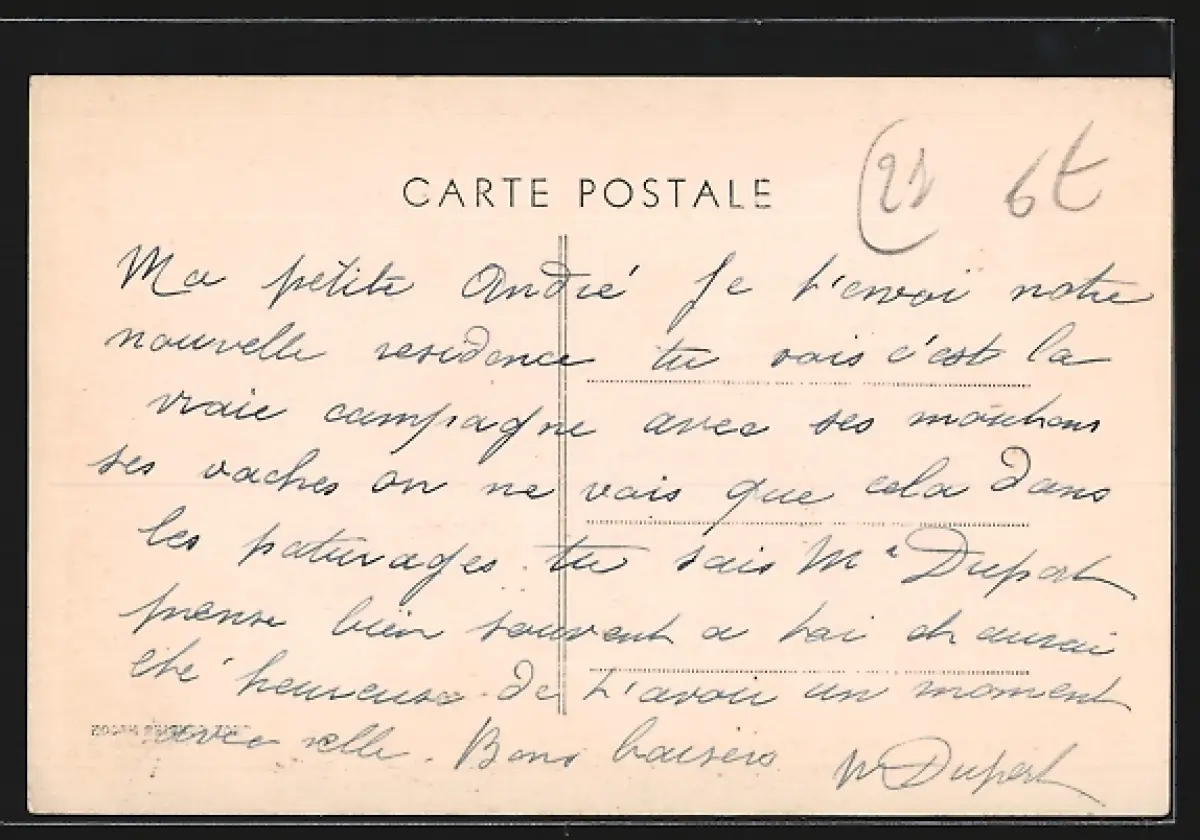 CARTE POSTALE
21 6t
Ma petite André Je t'envoi notre
nouvelle residence tu vois c'est la
vraie campagne avec ses moutons
ses vaches on ne vois que cela dans
les paturages. tu sais Me Duport
pense bien souvent a toi et aurai
été heureuse de t'avoir un moment
avec elle. Bons baisers M Duport